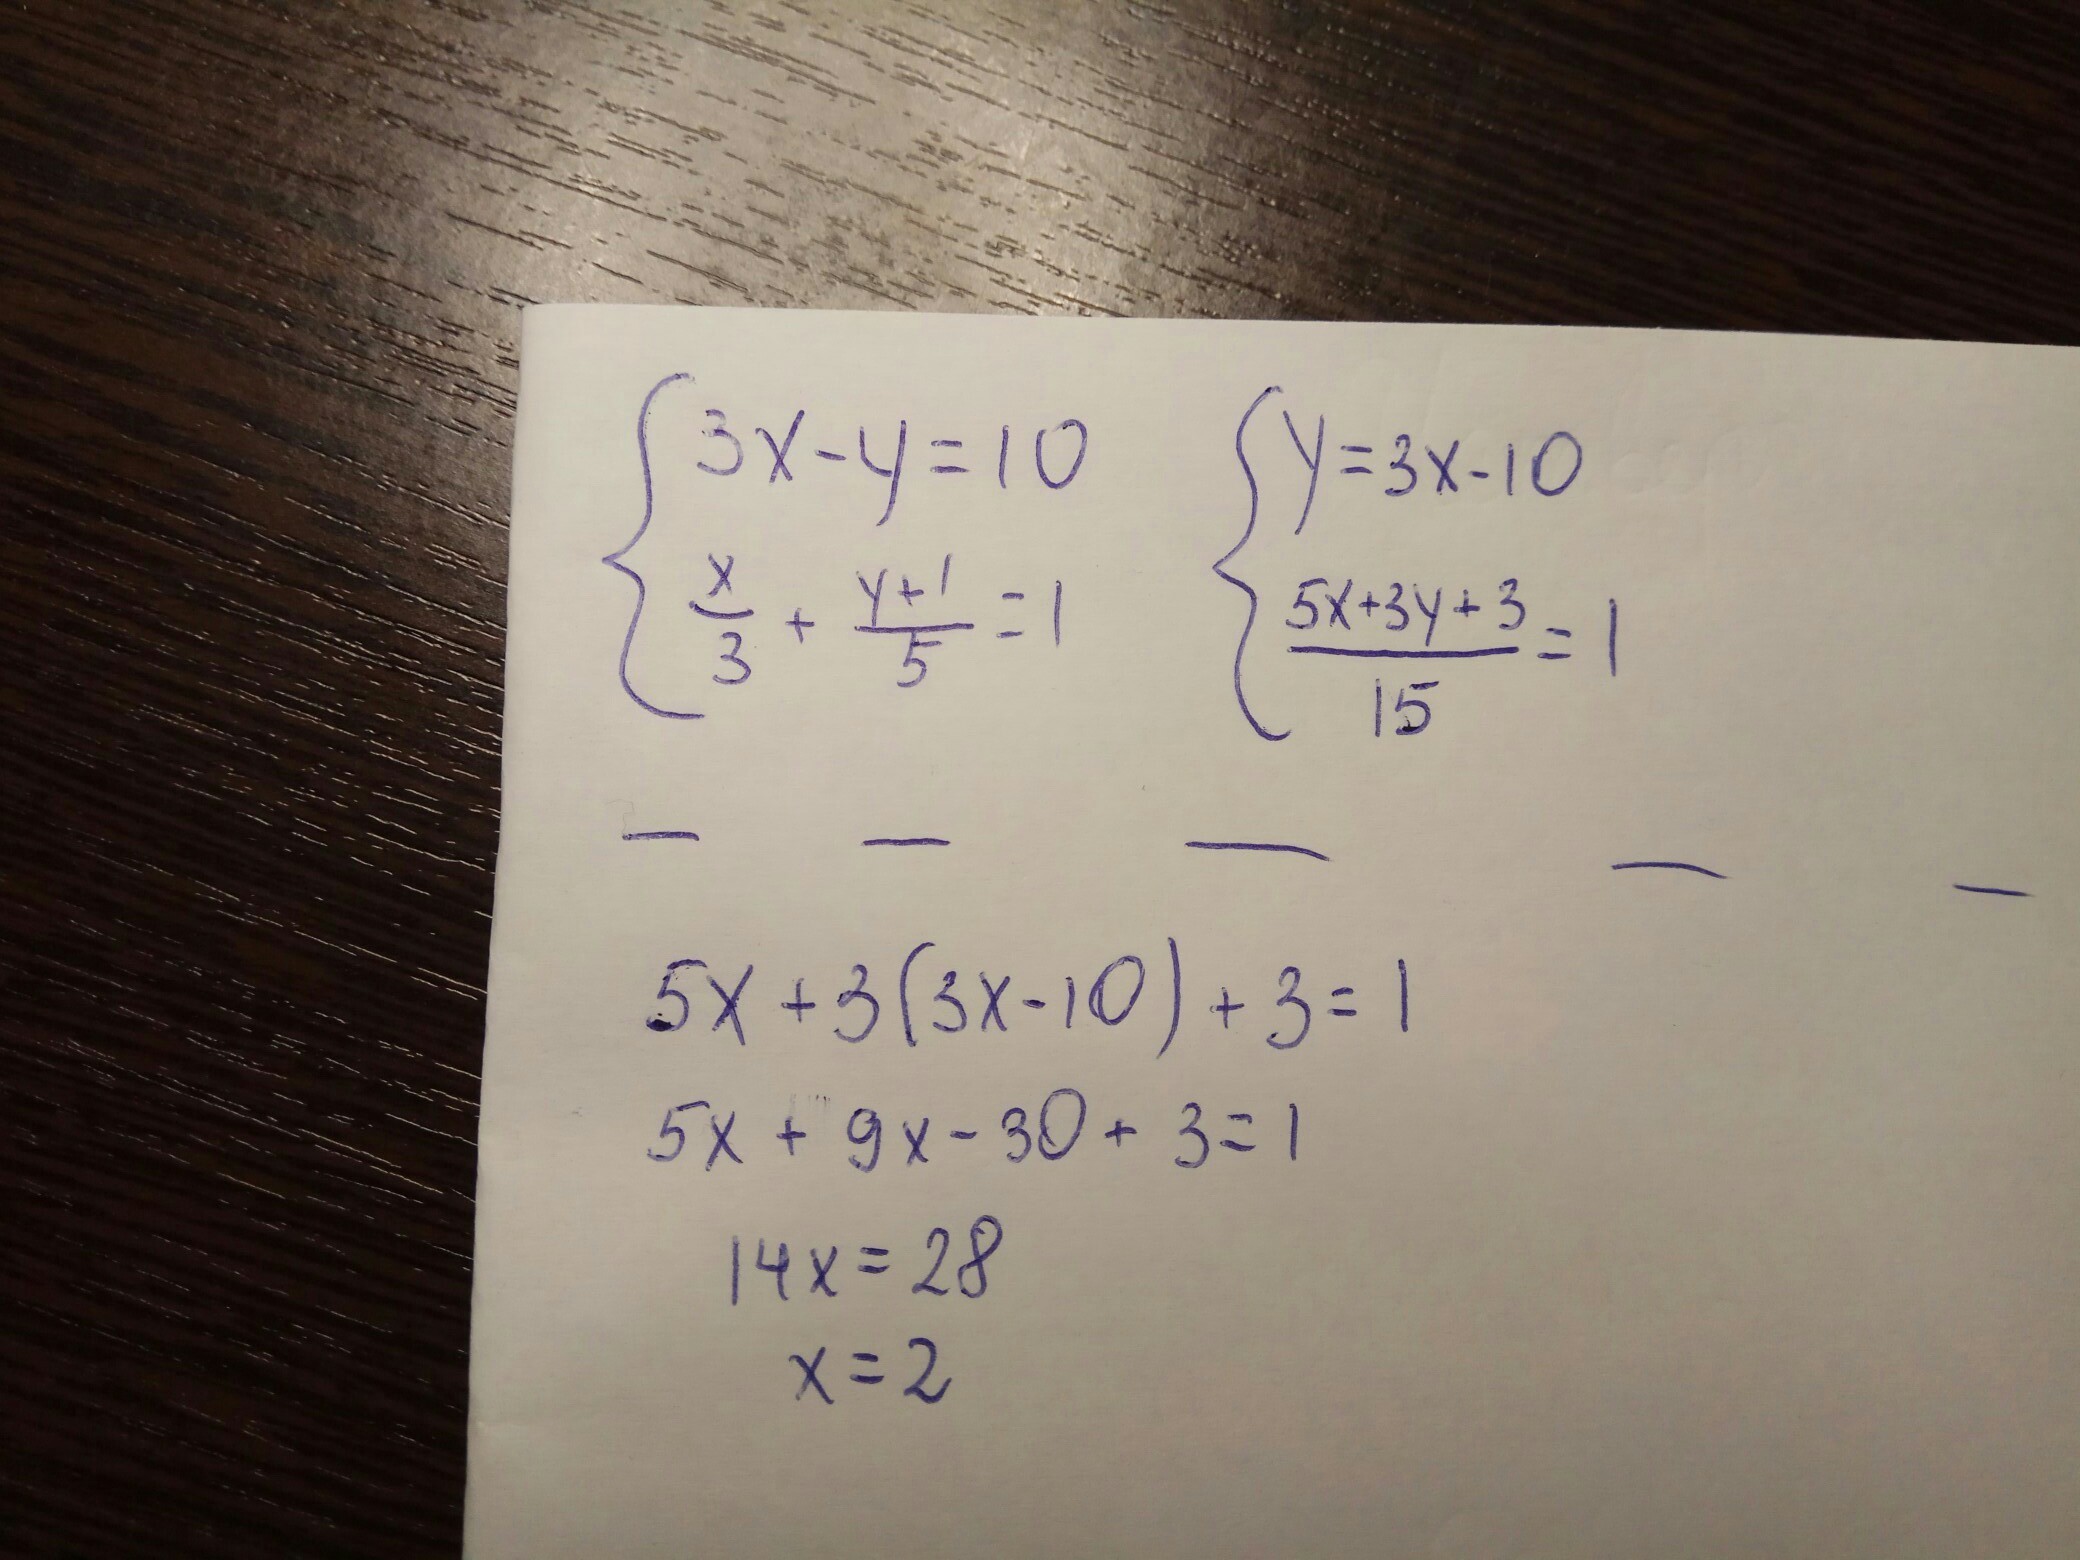 3x-y=10
x/3 + y+1/5 =1
y=3x-10
5x+3y+3/15 =1
5x+3(3x-10)+3=1
5x+9x-30+3=1
14x=28
x=2